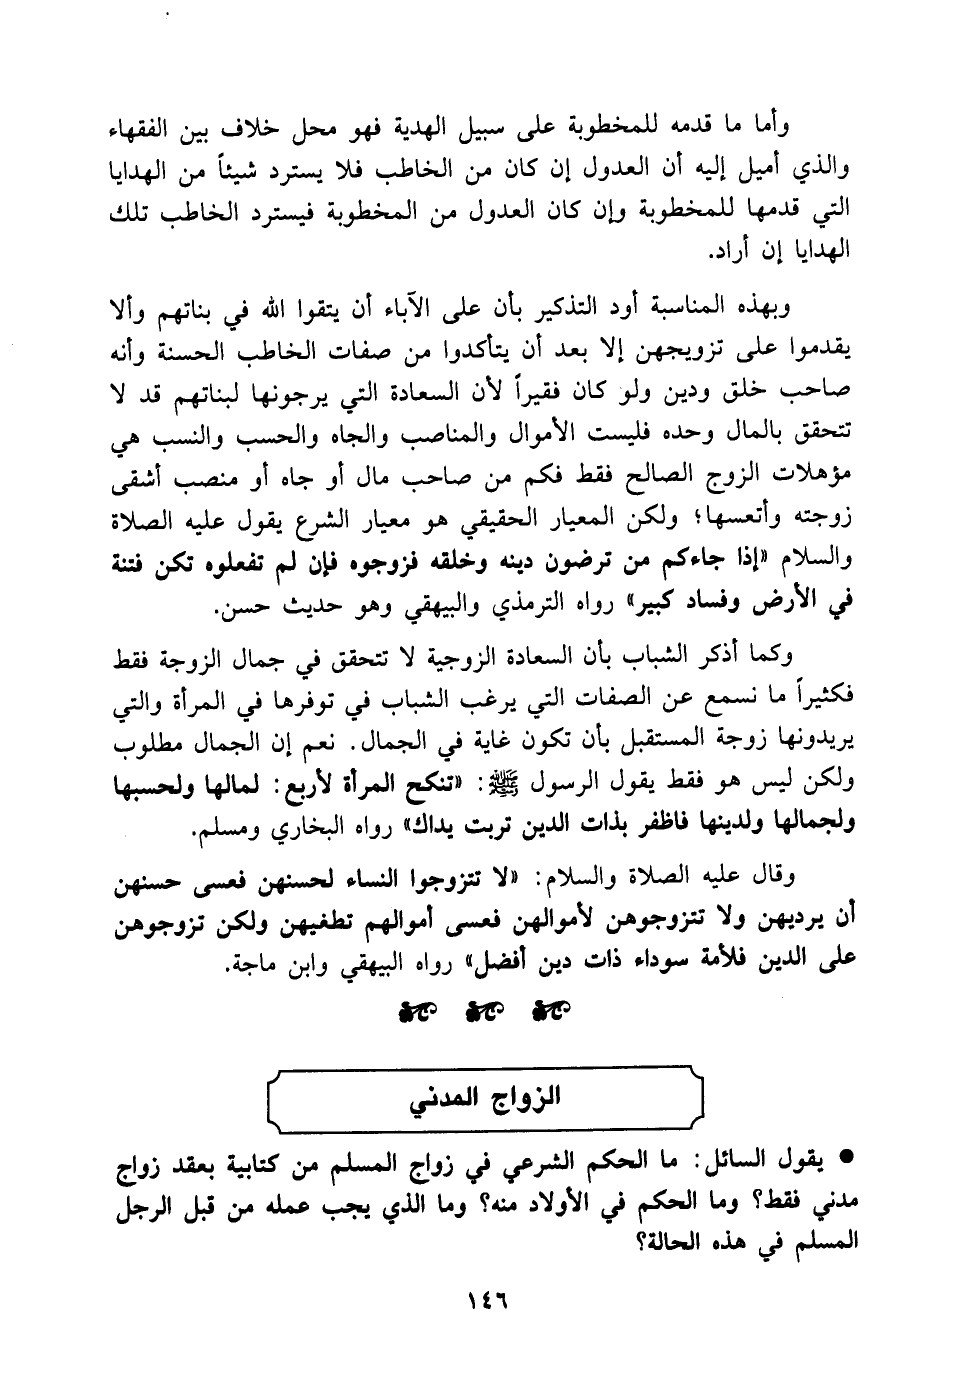 وأما ما قدمه للمخطوبة على سبيل الهدية فهو محل خلاف بين الفقهاء
والذي أميل إليه أن العدول إن كان من الخاطب فلا يسترد شيئاً من الهدايا
التي قدمها للمخطوبة وإن كان العدول من المخطوبة فيسترد الخاطب تلك
الهدايا إن أراد.
وبهذه المناسبة أود التذكير بأن على الآباء أن يتقوا الله في بناتهم وألا
يقدموا على تزويجهن إلا بعد أن يتأكدوا من صفات الخاطب الحسنة وأنه
صاحب خلق ودين ولو كان فقيراً لأن السعادة التي يرجونها لبناتهم قد لا
تتحقق بالمال وحده فليست الأموال والمناصب والجاه والحسب والنسب هي
مؤهلات الزوج الصالح فقط فكم من صاحب مال أو جاه أو منصب أشقى
زوجته وأتعسها؛ ولكن المعيار الحقيقي هو معيار الشرع يقول عليه الصلاة
والسلام «إذا جاءكم من ترضون دينه وخلقه فزوجوه فإن لم تفعلوه تكن فتنة
في الأرض وفساد كبير» رواه الترمذي والبيهقي وهو حديث حسن.
وكما أذكر الشباب بأن السعادة الزوجية لا تتحقق في جمال الزوجة فقط
فكثيراً ما نسمع عن الصفات التي يرغب الشباب في توفرها في المرأة والتي
يريدونها زوجة المستقبل بأن تكون غاية في الجمال. نعم إن الجمال مطلوب
ولكن ليس هو فقط يقول الرسول ﷺ: «تنكح المرأة لأربع: لمالها ولحسبها
ولجمالها ولدينها فاظفر بذات الدين تربت يداك» رواه البخاري ومسلم.
وقال عليه الصلاة والسلام: «لا تتزوجوا النساء لحسنهن فعسى حسنهن
أن يرديهن ولا تتزوجوهن لأموالهن فعسى أموالهم تطغيهن ولكن تزوجوهن
على الدين فلأمة سوداء ذات دين أفضل» رواه البيهقي وابن ماجة.
الزواج المدني
● يقول السائل: ما الحكم الشرعي في زواج المسلم من كتابية بعقد زواج
مدني فقط؟ وما الحكم في الأولاد منه؟ وما الذي يجب عمله من قبل الرجل
المسلم في هذه الحالة؟
١٤٦